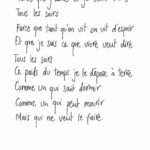 Tous les soirs
Parce que tant qu'on vit on vit d'espoir
Et que je sais ce que vivre veut dire
Tous les soirs
Ce poids du temps je le dépose à terre
Comme un qui sait dormir
Comme un qui peut mourir
Mais qui ne veut le faire.